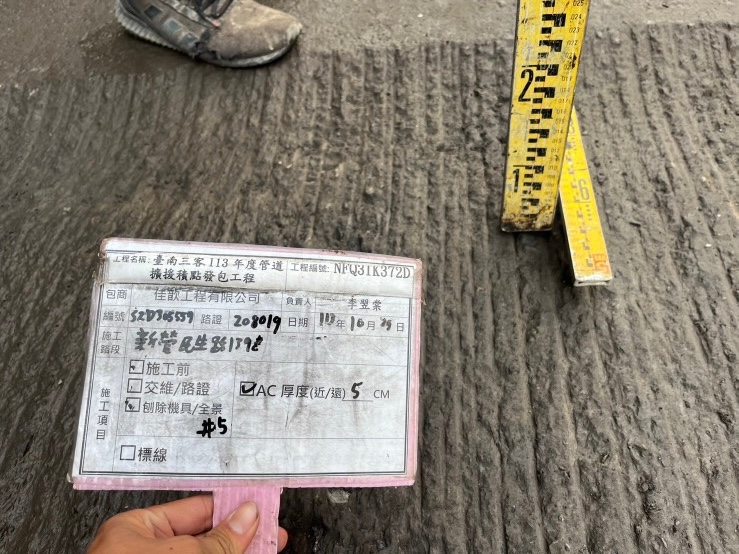 工程名稱: 臺南三客113年度管道
擴後積點發包工程
工程編號: NFQ31K372D
包商 佳歆工程有限公司 負責人 李昱棠
編號 路證 208019 日期 113年10月29日
施工
路段
新營民生路139巷
施工項目
施工前
交維/路證
刨除機具/全景
#5
AC 厚度(近/遠) 5 CM
標線
2
1
6